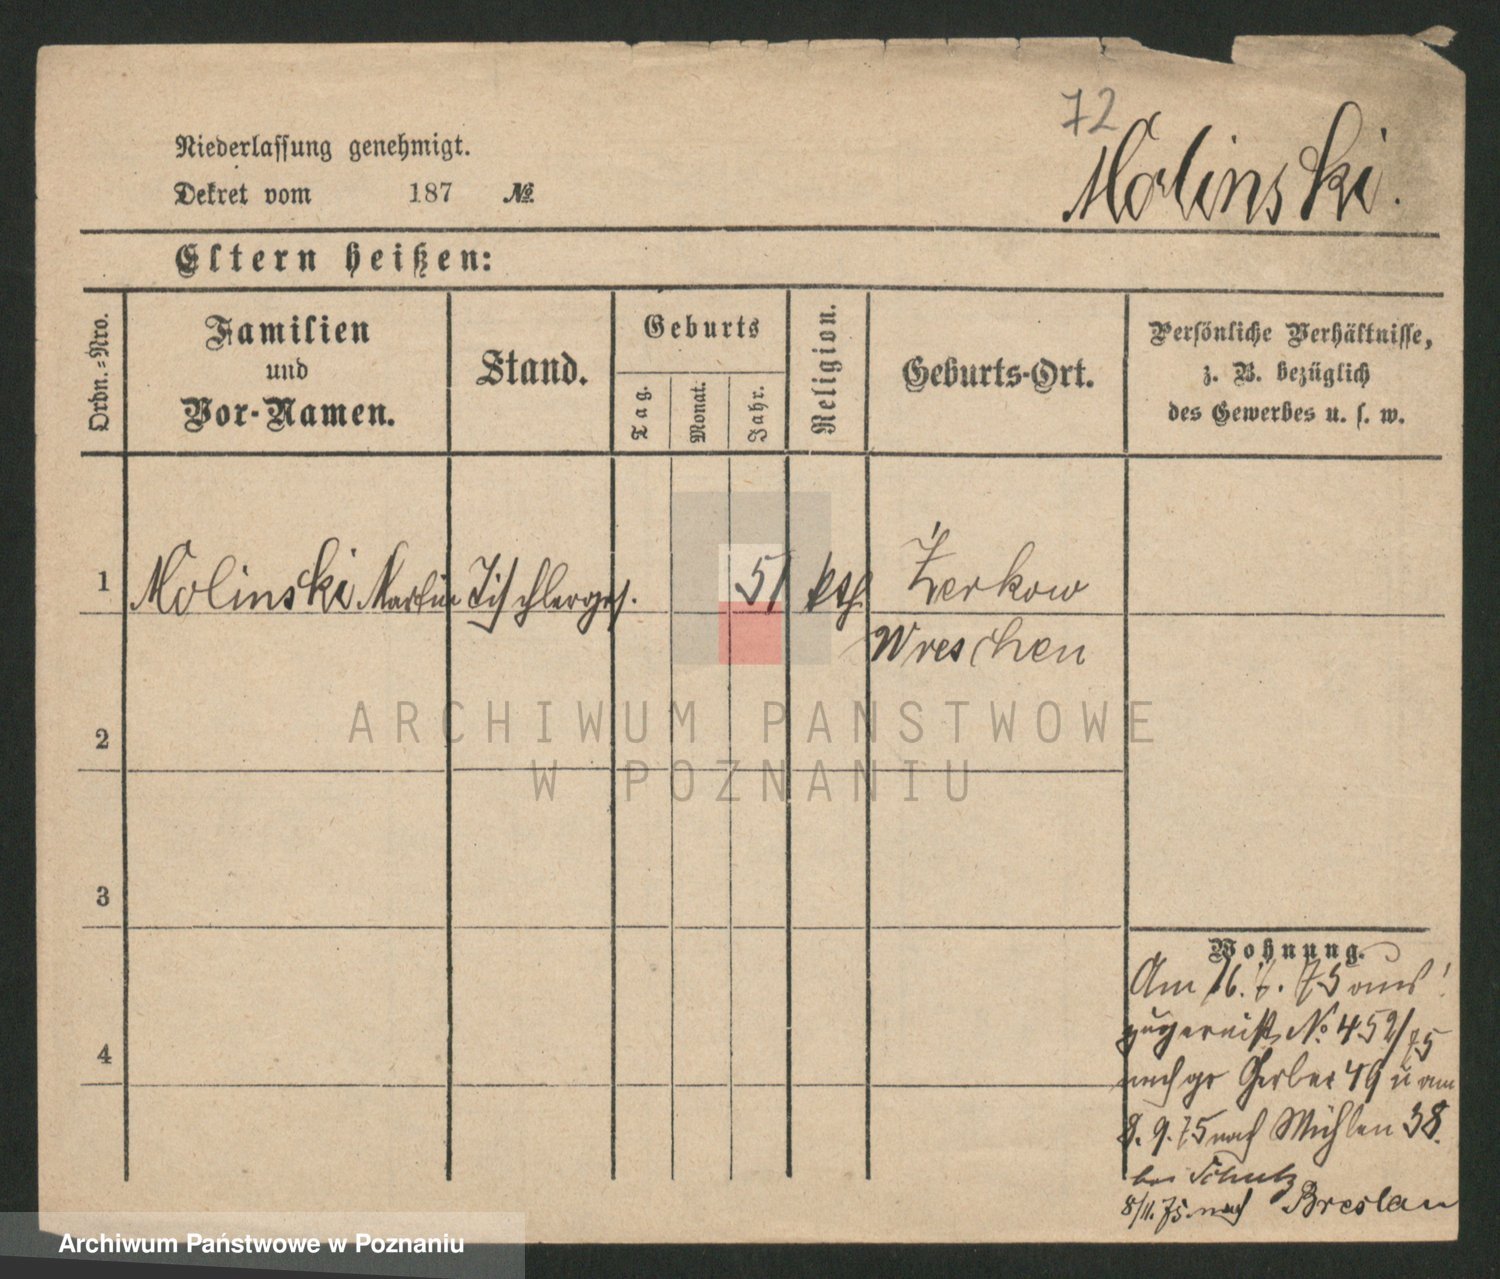 72
Molinski.
Niederlassung genehmigt.
Dekret vom 187 №
Eltern heißen:
Ordn.-Nro.
Familien
und
Vor-Namen.
Stand.
Geburts
Tag.
Monat.
Jahr.
Religion.
Geburts-Ort.
Persönliche Verhältnisse,
z. B. bezüglich
des Gewerbes u. s. w.
1 Molinski Martin Tischlerges. 51 kth Żerkow
Wreschen
ARCHIWUM PAŃSTWOWE
W POZNANIU
2
3
4
Wohnung.
Am 16. 75 aus
zugereist No 452/75
nach gr Gerber 49 u am
8. 9. 75 nach Mühlen 38.
bei Schulz
8/11. 75 nach Breslau
Archiwum Państwowe w Poznaniu